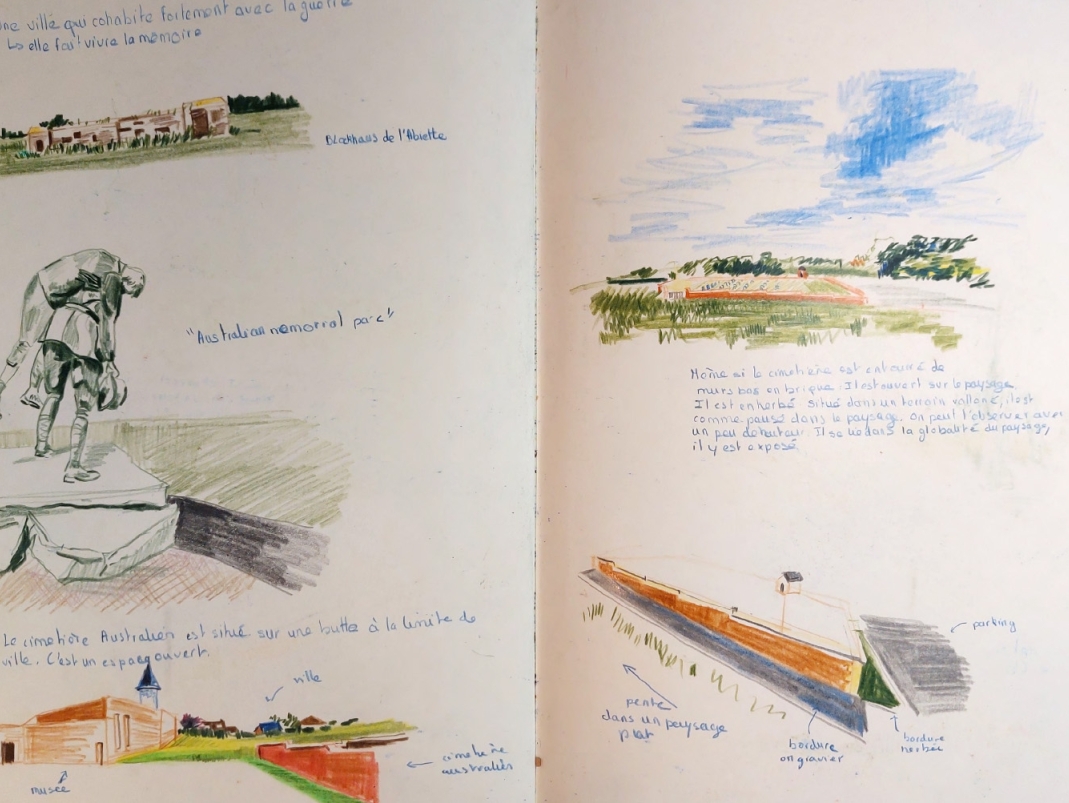 une ville qui cohabite fortement avec la guerre
↳ elle fait vivre la mémoire
Blockhaus de l'Abiette
"Australian memorial parc"
Le cimetière Australien est situé sur une butte à la limite de
ville. C'est un espace ouvert.
ville
cimetière
australien
musée
Même si le cimetière est entouré de
murs bas en brique. Il est ouvert sur le paysage
Il est enherbé. Situé dans un terrain valloné, il est
comme pausé dans le paysage. On peut l'observer avec
un peu de hauteur. Il se lie dans la globalité du paysage,
il y est exposé
parking
pente
dans un paysage
plat
bordure
en gravier
bordure
herbée